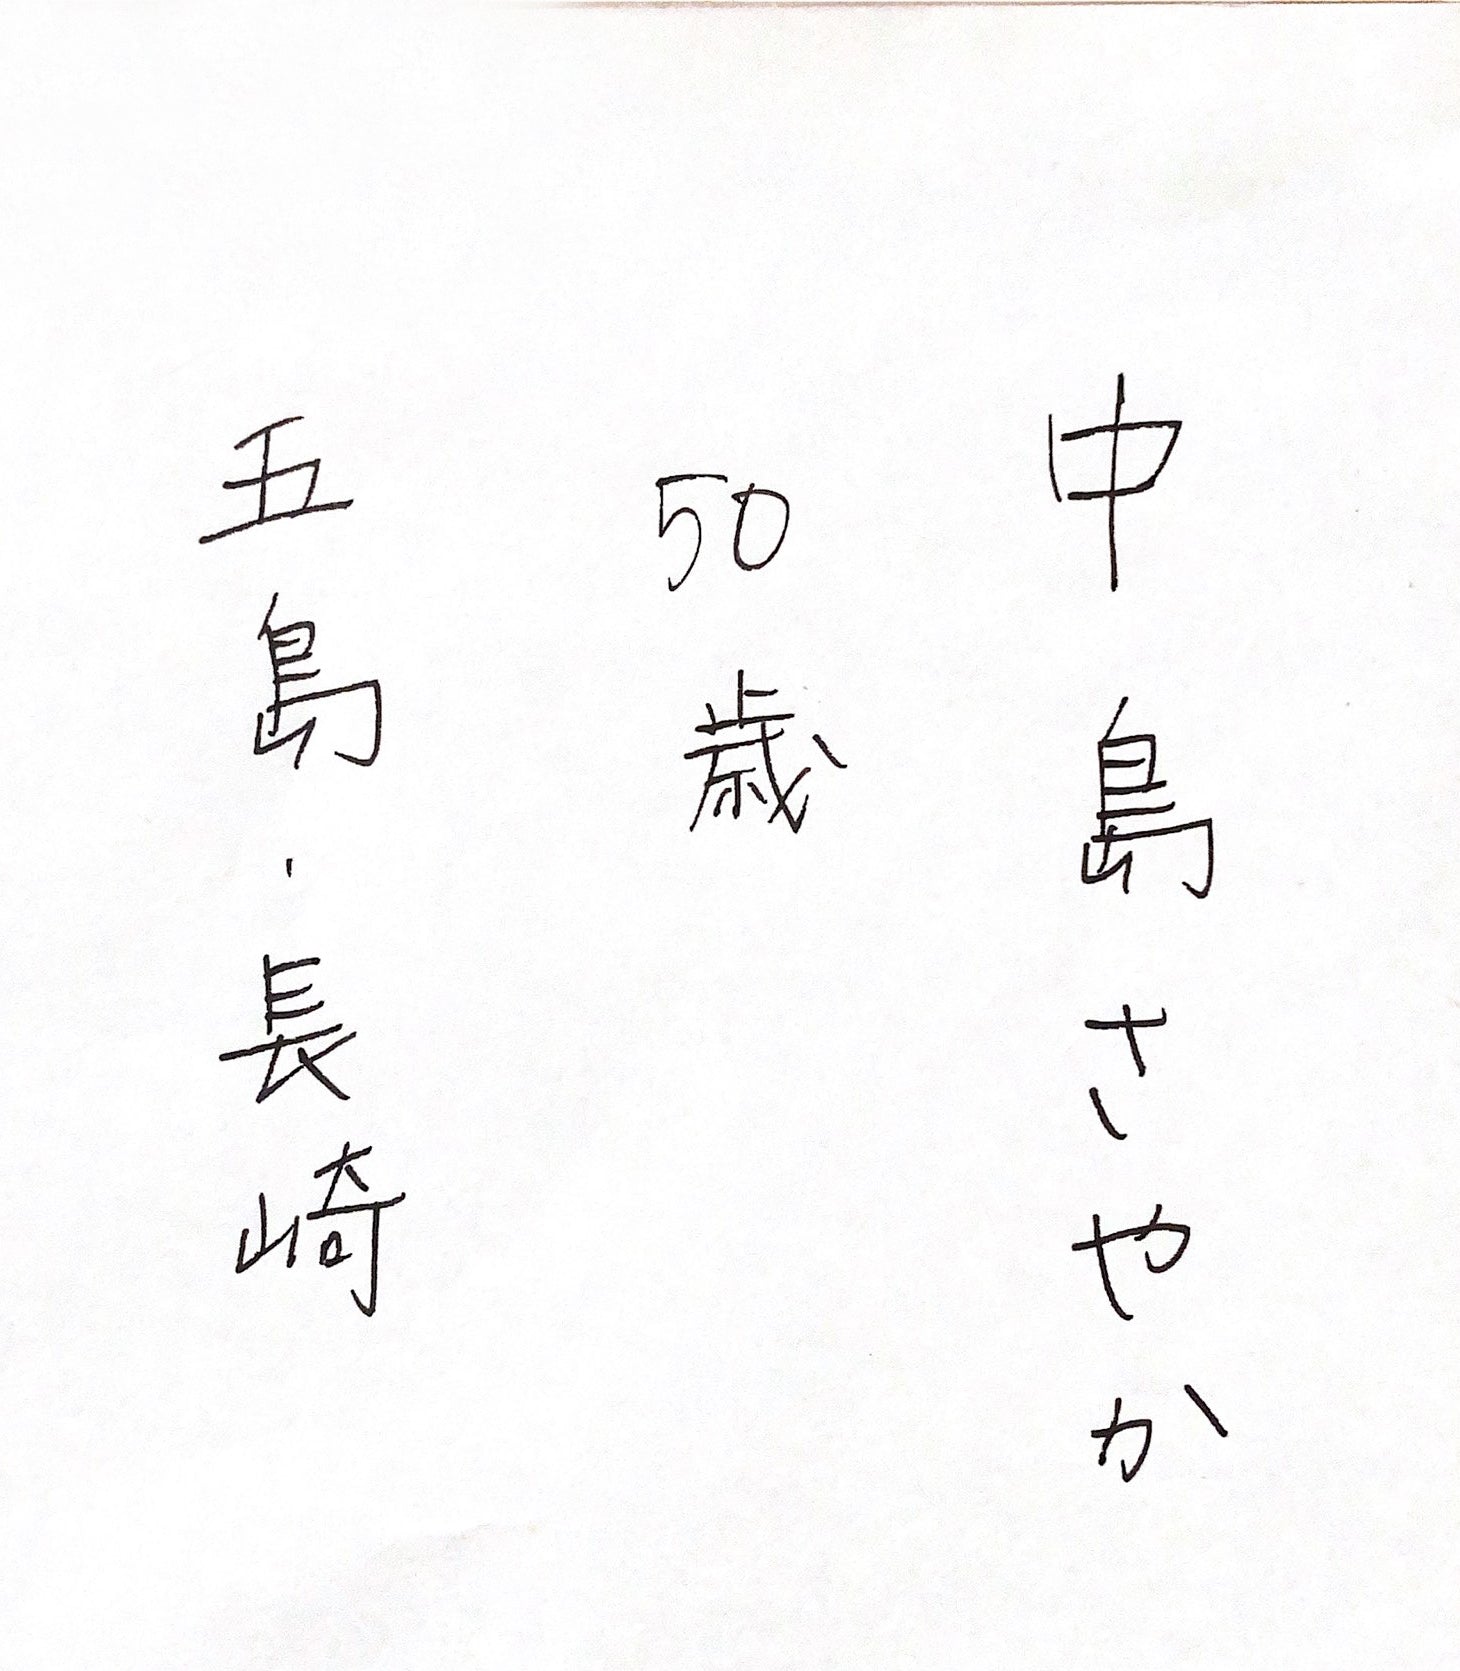 中島さやか
50歳
五島・長崎